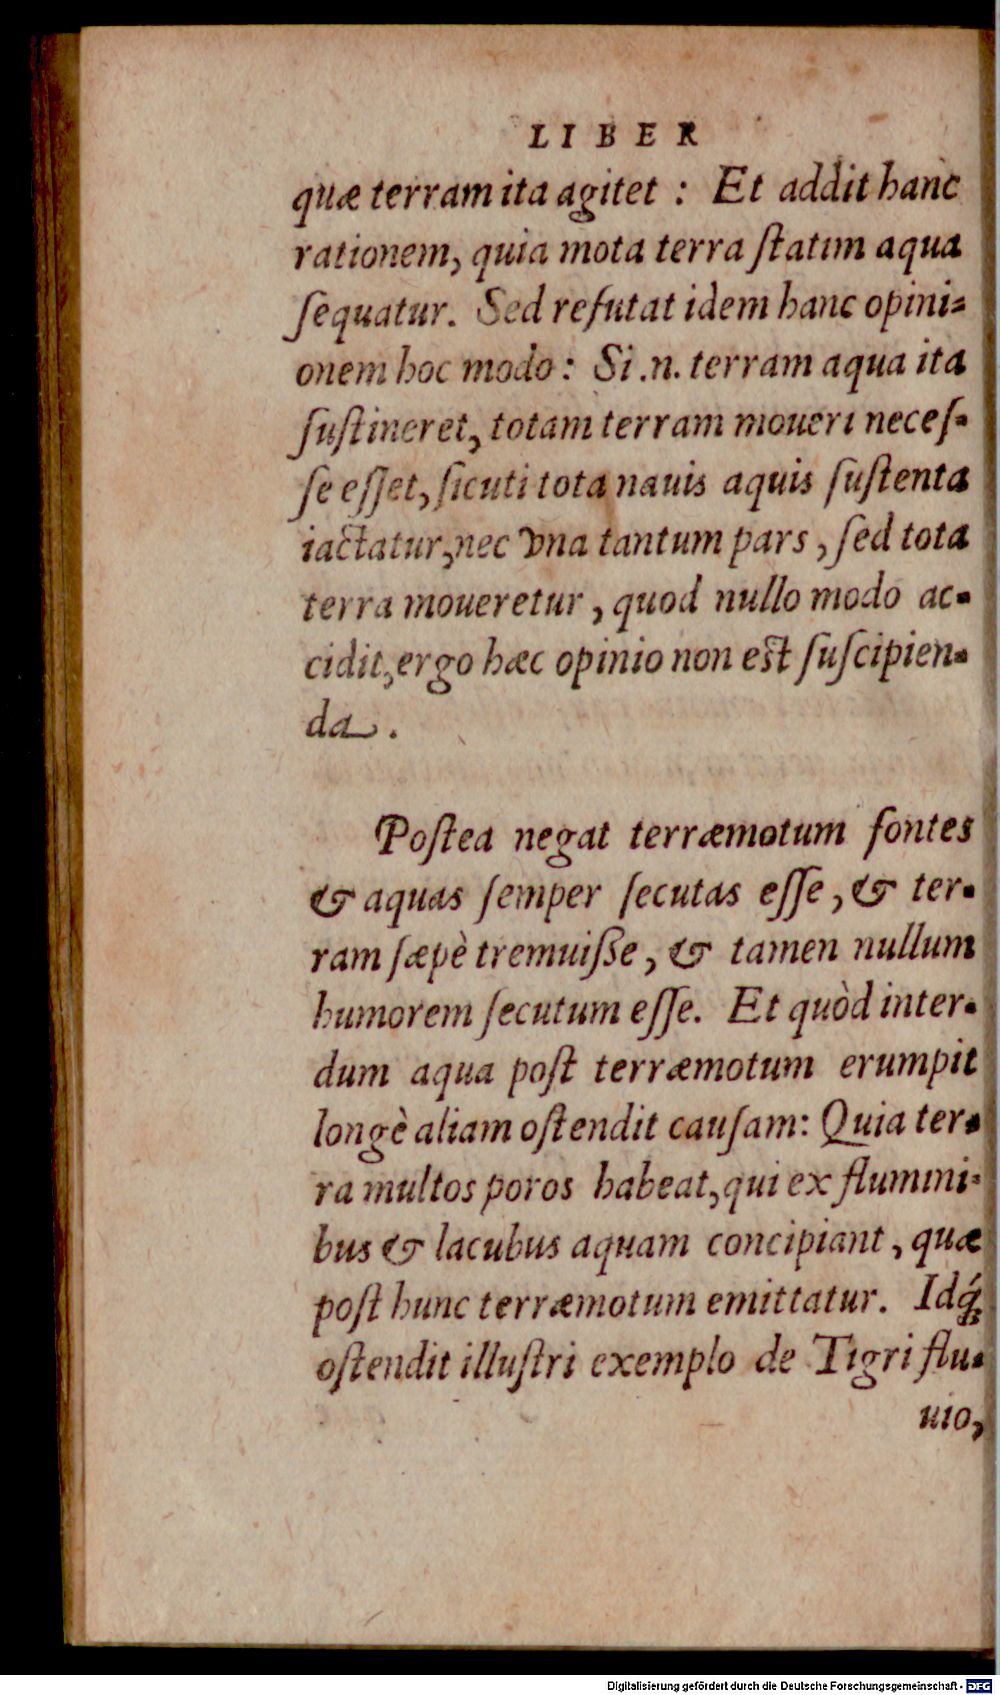 LIBER
quæ terram ita agitet : Et addit hanc
rationem, quia mota terra ſtatim aqua
ſequatur. Sed refutat idem hanc opini-
onem hoc modo : Si .n. terram aqua ita
ſuſtineret, totam terram moueri neceſ-
ſe eſſet, ſicuti tota nauis aquis ſuſtenta
iactatur, nec vna tantum pars, ſed tota
terra moueretur, quod nullo modo ac-
cidit, ergo hæc opinio non eſt ſuſcipien-
da.
Poſtea negat terræmotum fontes
& aquas ſemper ſecutas eſſe, & ter-
ram ſæpè tremuiſſe, & tamen nullum
humorem ſecutum eſſe. Et quòd inter-
dum aqua poſt terræmotum erumpit
longè aliam oſtendit cauſam: Quia ter-
ra multos poros habeat, qui ex flumini-
bus & lacubus aquam concipiant, quæ
poſt hunc terræmotum emittatur. Idq́;
oſtendit illuſtri exemplo de Tigri flu-
uio,
Digitalisierung gefördert durch die Deutsche Forschungsgemeinschaft - DFG